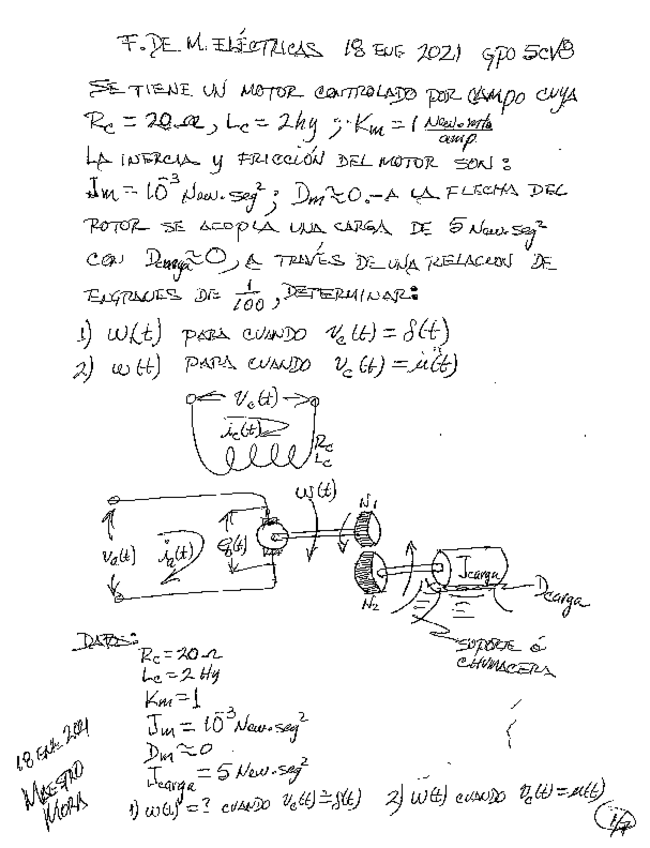 F. DE M. ELÉCTRICAS 18 ENE 2021 GPO 5CV8
SE TIENE UN MOTOR CONTROLADO POR CAMPO CUYA
Rc = 20 Ω, Lc = 2hy ; Km = 1 New-mto/amp.
LA INERCIA Y FRICCIÓN DEL MOTOR SON:
Jm = 10⁻³ New.seg²; Dm ≈ 0.- A LA FLECHA DEL
ROTOR SE ACOPLA UNA CARGA DE 5 New.seg²
CON Dcarga ≈ 0, A TRAVÉS DE UNA RELACION DE
ENGRANES DE 1/100, DETERMINAR:
1) ω(t) PARA CUANDO Vc(t) = δ(t)
2) ω(t) PARA CUANDO Vc(t) = ü(t)
Vc(t)
ic(t)
Rc
Lc
ω(t)
N1
va(t)
ia(t)
eg(t)
Jcarga
Dcarga
N2
SOPORTE Ó
CHUMACERA
DATOS:
Rc = 20 Ω
Lc = 2 Hy
Km = 1
Jm = 10⁻³ New.seg²
Dm ≈ 0
Jcarga = 5 New.seg²
1) ω(t) = ? CUANDO Vc(t) = δ(t) 2) ω(t) CUANDO Vc(t) = u(t)
18 ENE 2021
MAESTRO
MORA
1/7